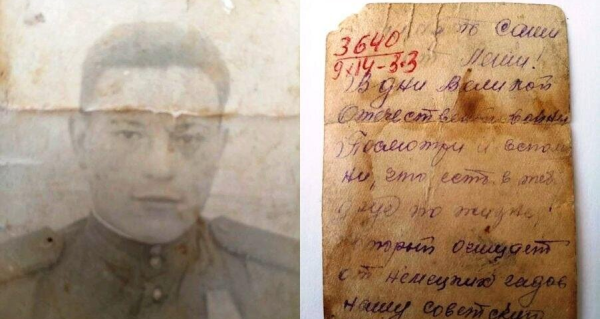 Саши
3640
9/14-3.3
В дни Великой
Отечественной войны
Посмотри и вспом
ни, что есть в
друг по жизни,
который очищает
от немецких гадов
нашу советский